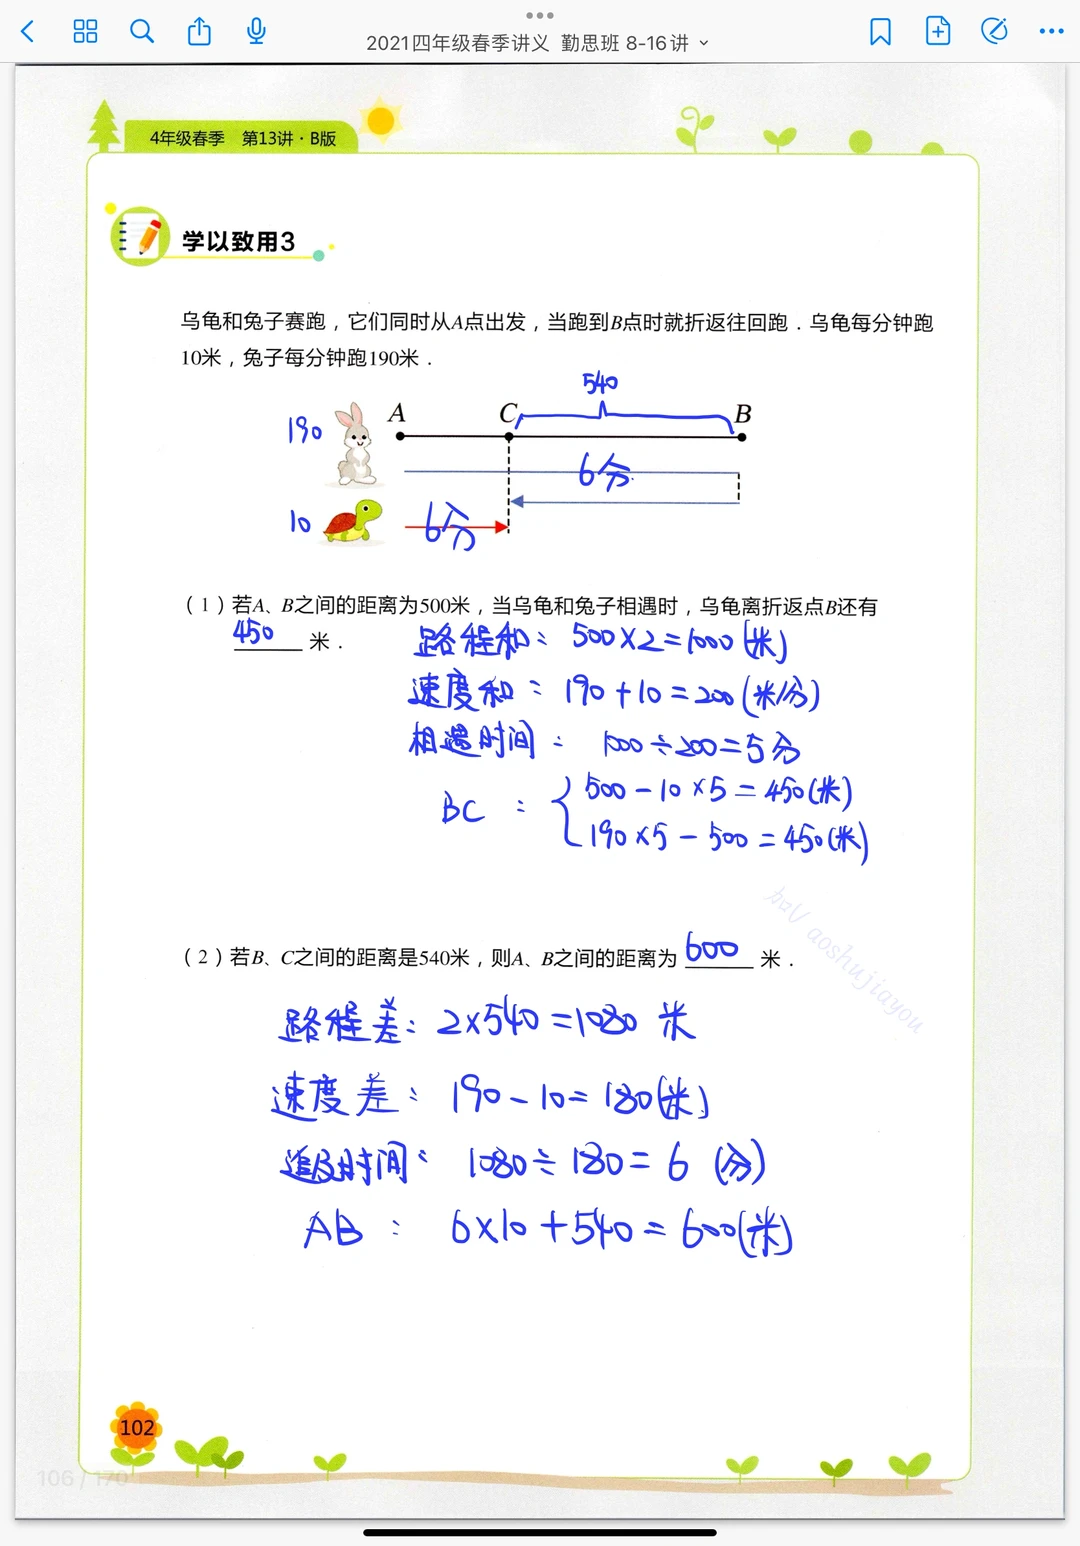 2021四年级春季讲义 勤思班 8-16讲
4年级春季 第13讲·B版
学以致用3
乌龟和兔子赛跑，它们同时从A点出发，当跑到B点时就折返往回跑．乌龟每分钟跑
10米，兔子每分钟跑190米．
540
190 A C B
6分
10 6分
（1）若A、B之间的距离为500米，当乌龟和兔子相遇时，乌龟离折返点B还有
450 米．
路程和：500×2=1000(米)
速度和：190+10=200(米/分)
相遇时间：1000÷200=5分
BC：{500-10×5=450(米)
190×5-500=450(米)
（2）若B、C之间的距离是540米，则A、B之间的距离为 600 米．
aoshujiayou
路程差：2×540=1080 米
速度差：190-10=180(米)
追及时间：1080÷180=6 (分)
AB：6×10+540=600(米)
102
106 / 170